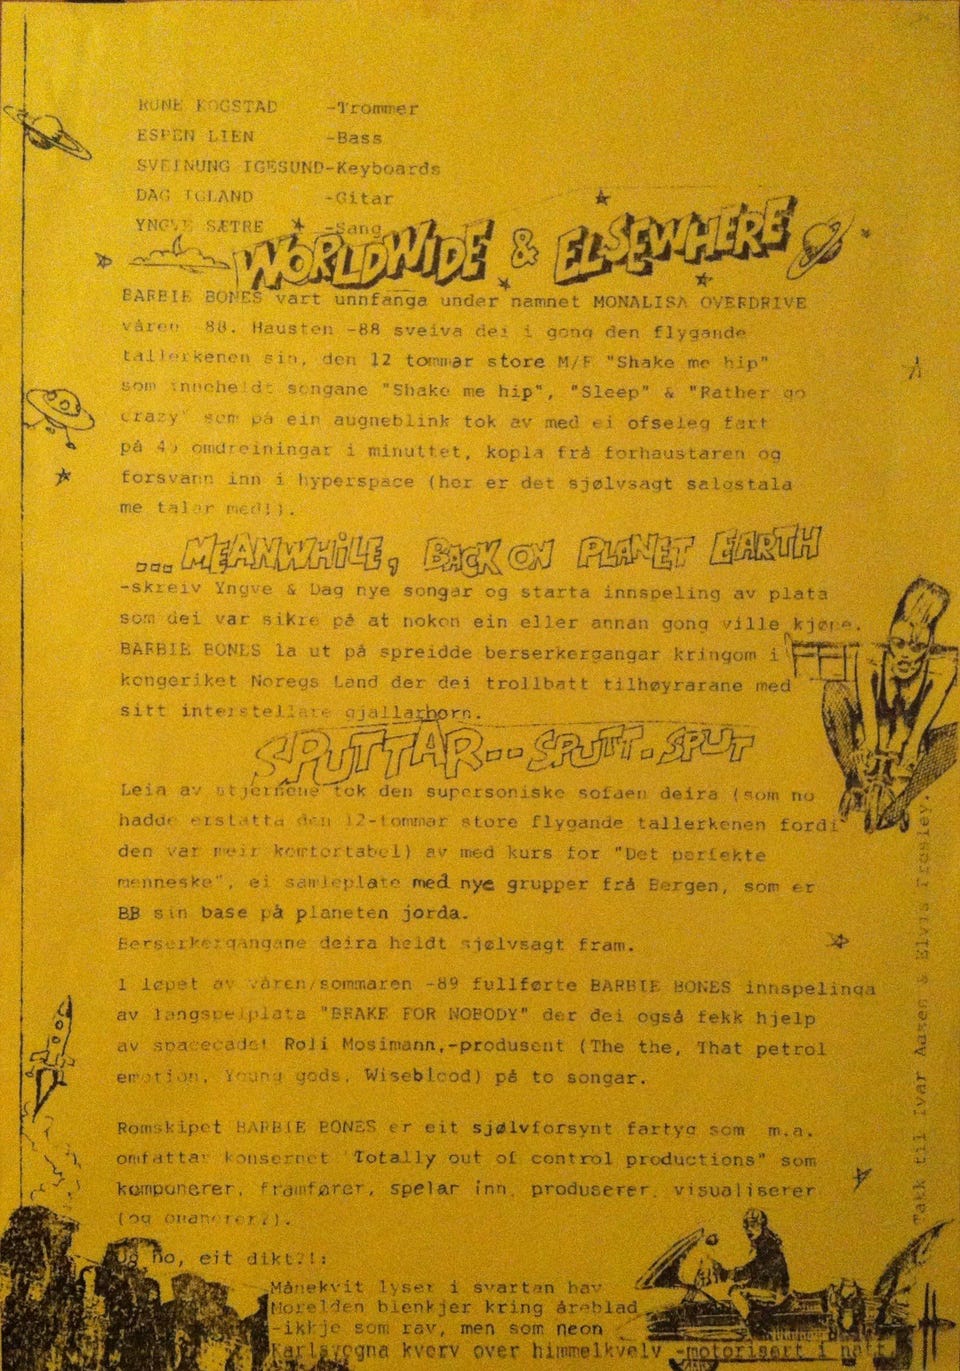 RUNE KOGSTAD -Trommer
ESPEN LIEN -Bass
SVEINUNG IGESUND-Keyboards
DAG IGLAND -Gitar
YNGVE SÆTRE -Sang
WORLDWIDE & ELSEWHERE
BARBIE BONES vart unnfanga under namnet MONALISA OVERDRIVE
våren 88. Hausten -88 sveiva dei i gong den flygande
tallerkenen sin, den 12 tommar store M/F "Shake me hip"
som inneheldt songane "Shake me hip", "Sleep" & "Rather go
crazy" som på ein augneblink tok av med ei ofseleg fart
på 45 omdreiningar i minuttet, kopla frå forhaustaren og
forsvann inn i hyperspace (her er det sjølvsagt salgstala
me talar med!).
...MEANWHILE, BACK ON PLANET EARTH
-skreiv Yngve & Dag nye songar og starta innspeling av plata
som dei var sikre på at nokon ein eller annan gong ville kjøpe.
BARBIE BONES la ut på spreidde berserkergangar kringom i
kongeriket Noregs Land der dei trollbatt tilhøyrarane med
sitt interstellare gjallarhorn.
SPUTTAR...SPUTT.SPUT
Leia av stjernene tok den supersoniske sofaen deira (som no
hadde erstatta den 12-tommar store flygande tallerkenen fordi
den var meir komfortabel) av med kurs for "Det perfekte
menneske", ei samleplate med nye grupper frå Bergen, som er
BB sin base på planeten jorda.
Berserkergangane deira heldt sjølvsagt fram.
I løpet av våren/sommaren -89 fullførte BARBIE BONES innspelinga
av langspelplata "BRAKE FOR NOBODY" der dei også fekk hjelp
av spacecadet Roli Mosimann,-produsent (The the, That petrol
emotion, Young gods, Wiseblood) på to songar.
Romskipet BARBIE BONES er eit sjølvforsynt fartyg som m.a.
omfattar konsernet "Totally out of control productions" som
komponerer, framfører, spelar inn, produserer, visualiserer
(og onanerer?).
Og no, eit dikt?!:
Månekvit lyser i svartan hav
Morelden blenkjer kring åreblad
-ikkje som rav, men som neon
Karlsvogna kverv over himmelkvelv -motorisert i natt
Takk til Ivar Aasen & Elvis Presley.